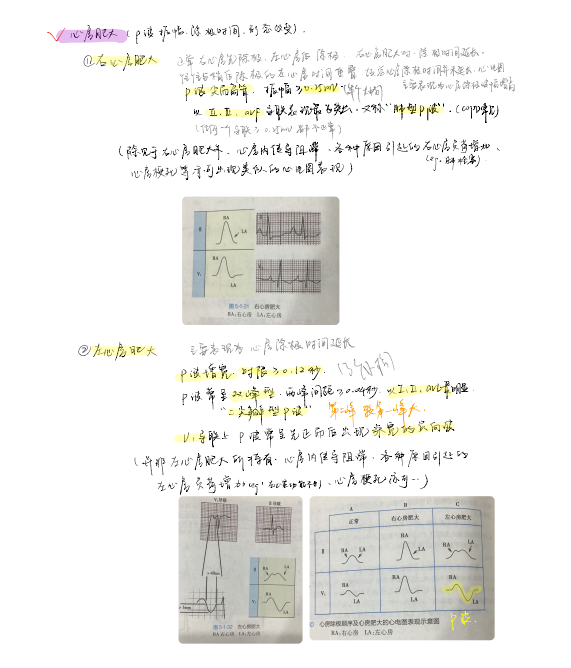 心房肥大 (P波振幅、除极时间、形态改变).
① 右心房肥大 正常右心房先除极, 左心房后除极. 右心房肥大时, 除极时间延长,
往往与稍后除极的左心房时间重叠, 总的心房除极时间并未延长, 心电图
P波尖而高耸, 振幅≥0.25mV 主要表现为心房除极波幅增高
以 Ⅱ、Ⅲ、aVF 导联表现最为突出, 又称"肺型P波". (COPD等)
(除见于右心房肥大外, 心房内传导阻滞、各种原因引起的右心房负荷增加、
(eg. 肺栓塞)
心房梗死等亦可出现类似的心电图表现)
Ⅱ RA LA
V₁ RA LA
图5-1-31 右心房肥大
RA:右心房 LA:左心房
② 左心房肥大 主要表现为心房除极时间延长
P波增宽, 时限≥0.12秒,
P波常呈双峰型, 两峰间距≥0.04秒, 以Ⅰ、Ⅱ、aVL最明显
"二尖瓣型P波" 第二峰较第一峰大.
V₁导联上 P波常呈先正而后出现深宽的负向波
(并非左心房肥大所特有, 心房内传导阻滞、各种原因引起的
左心房负荷增加 (eg. 左心室功能不全)、心房梗死亦可…)
V₁导联 Ⅱ导联
RA LA
RA LA
图5-1-32 左心房肥大
RA:右心房 LA:左心房
A B C
正常 右心房肥大 左心房肥大
Ⅱ RA LA RA LA RA LA
V₁ RA LA RA LA RA LA
心房除极顺序及心房肥大的心电图表现示意图
RA:右心房 LA:左心房
P波